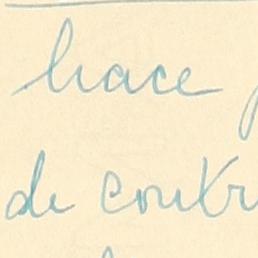 hace
de contr